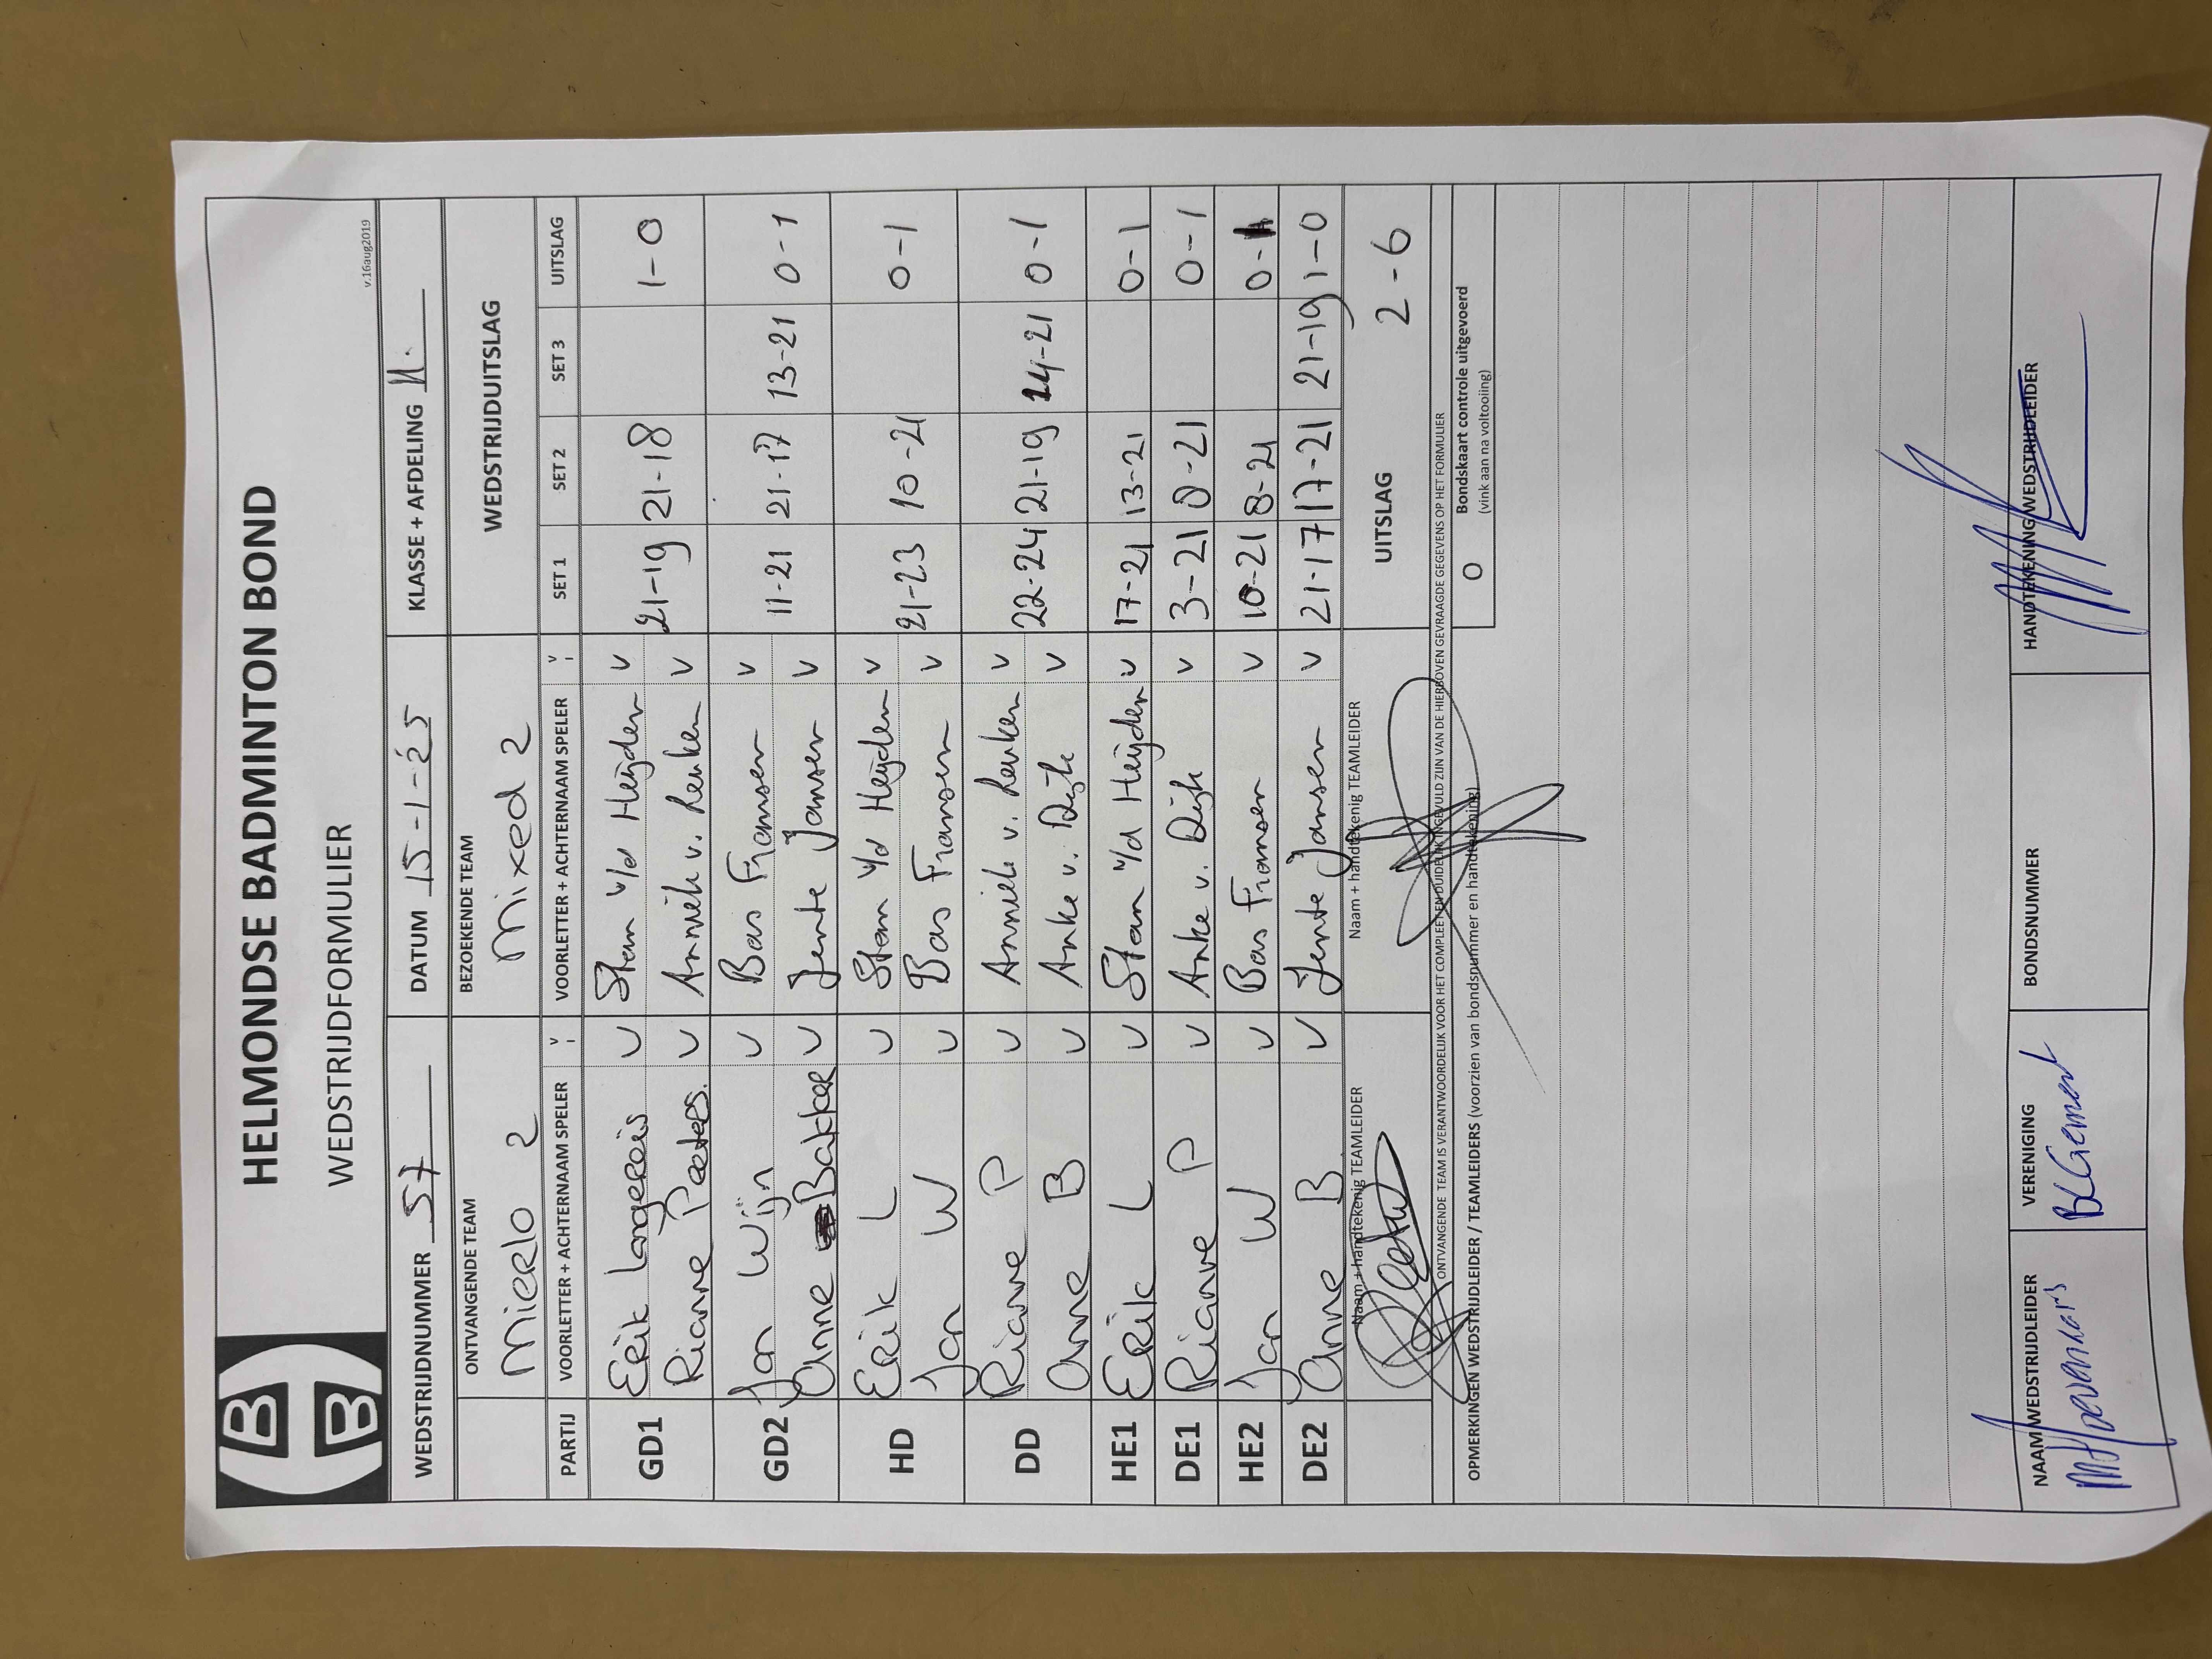 HELMONDSE BADMINTON BOND
WEDSTRIJDFORMULIER
v.16aug2019
WEDSTRIJDNUMMER 57 DATUM 15-1-25 KLASSE + AFDELING
ONTVANGENDE TEAM BEZOEKENDE TEAM WEDSTRIJDUITSLAG
MIERLO 2 Mixed 2
PARTIJ VOORLETTER + ACHTERNAAM SPELER V VOORLETTER + ACHTERNAAM SPELER V SET 1 SET 2 SET 3 UITSLAG
GD1 Erik Langereis V Stan v/d Heijden V 21-19 21-18 1-0
Rianne Peeters. V Anniek v. Leuken V
GD2 Jan Wijn V Bas Fransen V 11-21 21-17 13-21 0-1
Anne Bakker V Jente Jansen V
HD Erik L V Stan v/d Heijden V 21-23 10-21 0-1
Jan W V Bas Fransen V
DD Rianne P V Anniek v. Leuken V 22-24 21-19 24-21 0-1
Anne B V Anke v. Dijk V
HE1 Erik L V Stan v/d Heijden V 17-21 13-21 0-1
DE1 Rianne P V Anke v. Dijk V 3-21 8-21 0-1
HE2 Jan W V Bas Fransen V 10-21 8-21 0-1
DE2 Anne B V Jente Jansen V 21-17 17-21 21-19 1-0
Naam + handtekenig TEAMLEIDER Naam + handtekenig TEAMLEIDER UITSLAG 2-6
ONTVANGENDE TEAM IS VERANTWOORDELIJK VOOR HET COMPLEET EN DUIDELIJK INGEVULD ZIJN VAN DE HIERBOVEN GEVRAAGDE GEGEVENS OP HET FORMULIER
OPMERKINGEN WEDSTRIJDLEIDER / TEAMLEIDERS (voorzien van bondsnummer en handtekening)
O Bondskaart controle uitgevoerd
(vink aan na voltooiing)
NAAM WEDSTRIJDLEIDER VERENIGING BONDSNUMMER HANDTEKENING WEDSTRIJDLEIDER
BCGemert